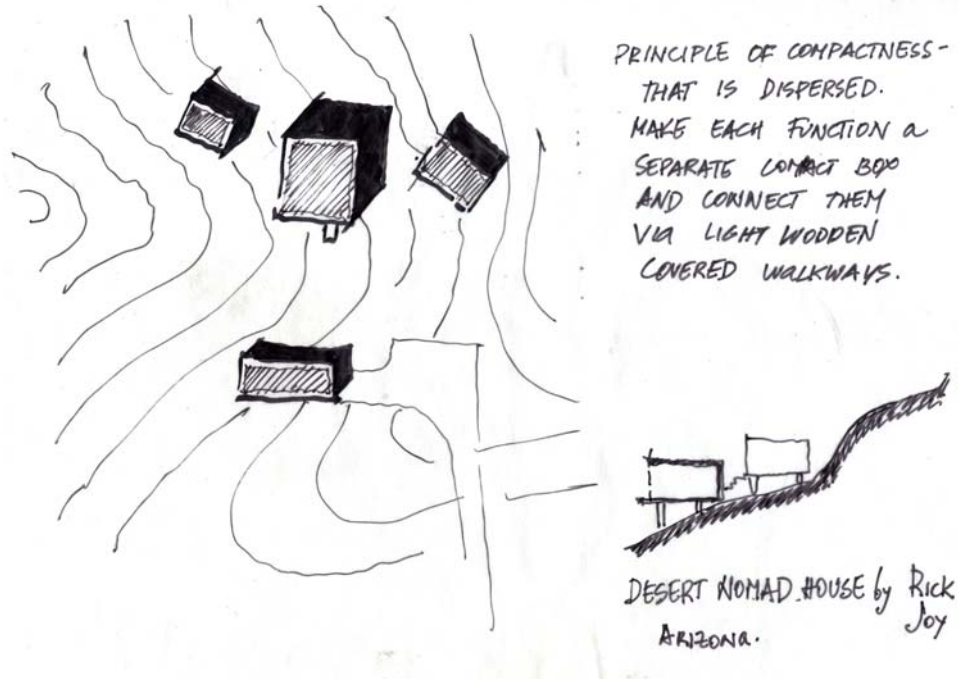 PRINCIPLE OF COMPACTNESS-
THAT IS DISPERSED.
MAKE EACH FUNCTION a
SEPARATE COMPACT BOX
AND CONNECT THEM
VIa LIGHT WOODEN
COVERED WaLKWAYS.
DESERT NOMAD HOUSE by RICK
JOY
ARIZONa.